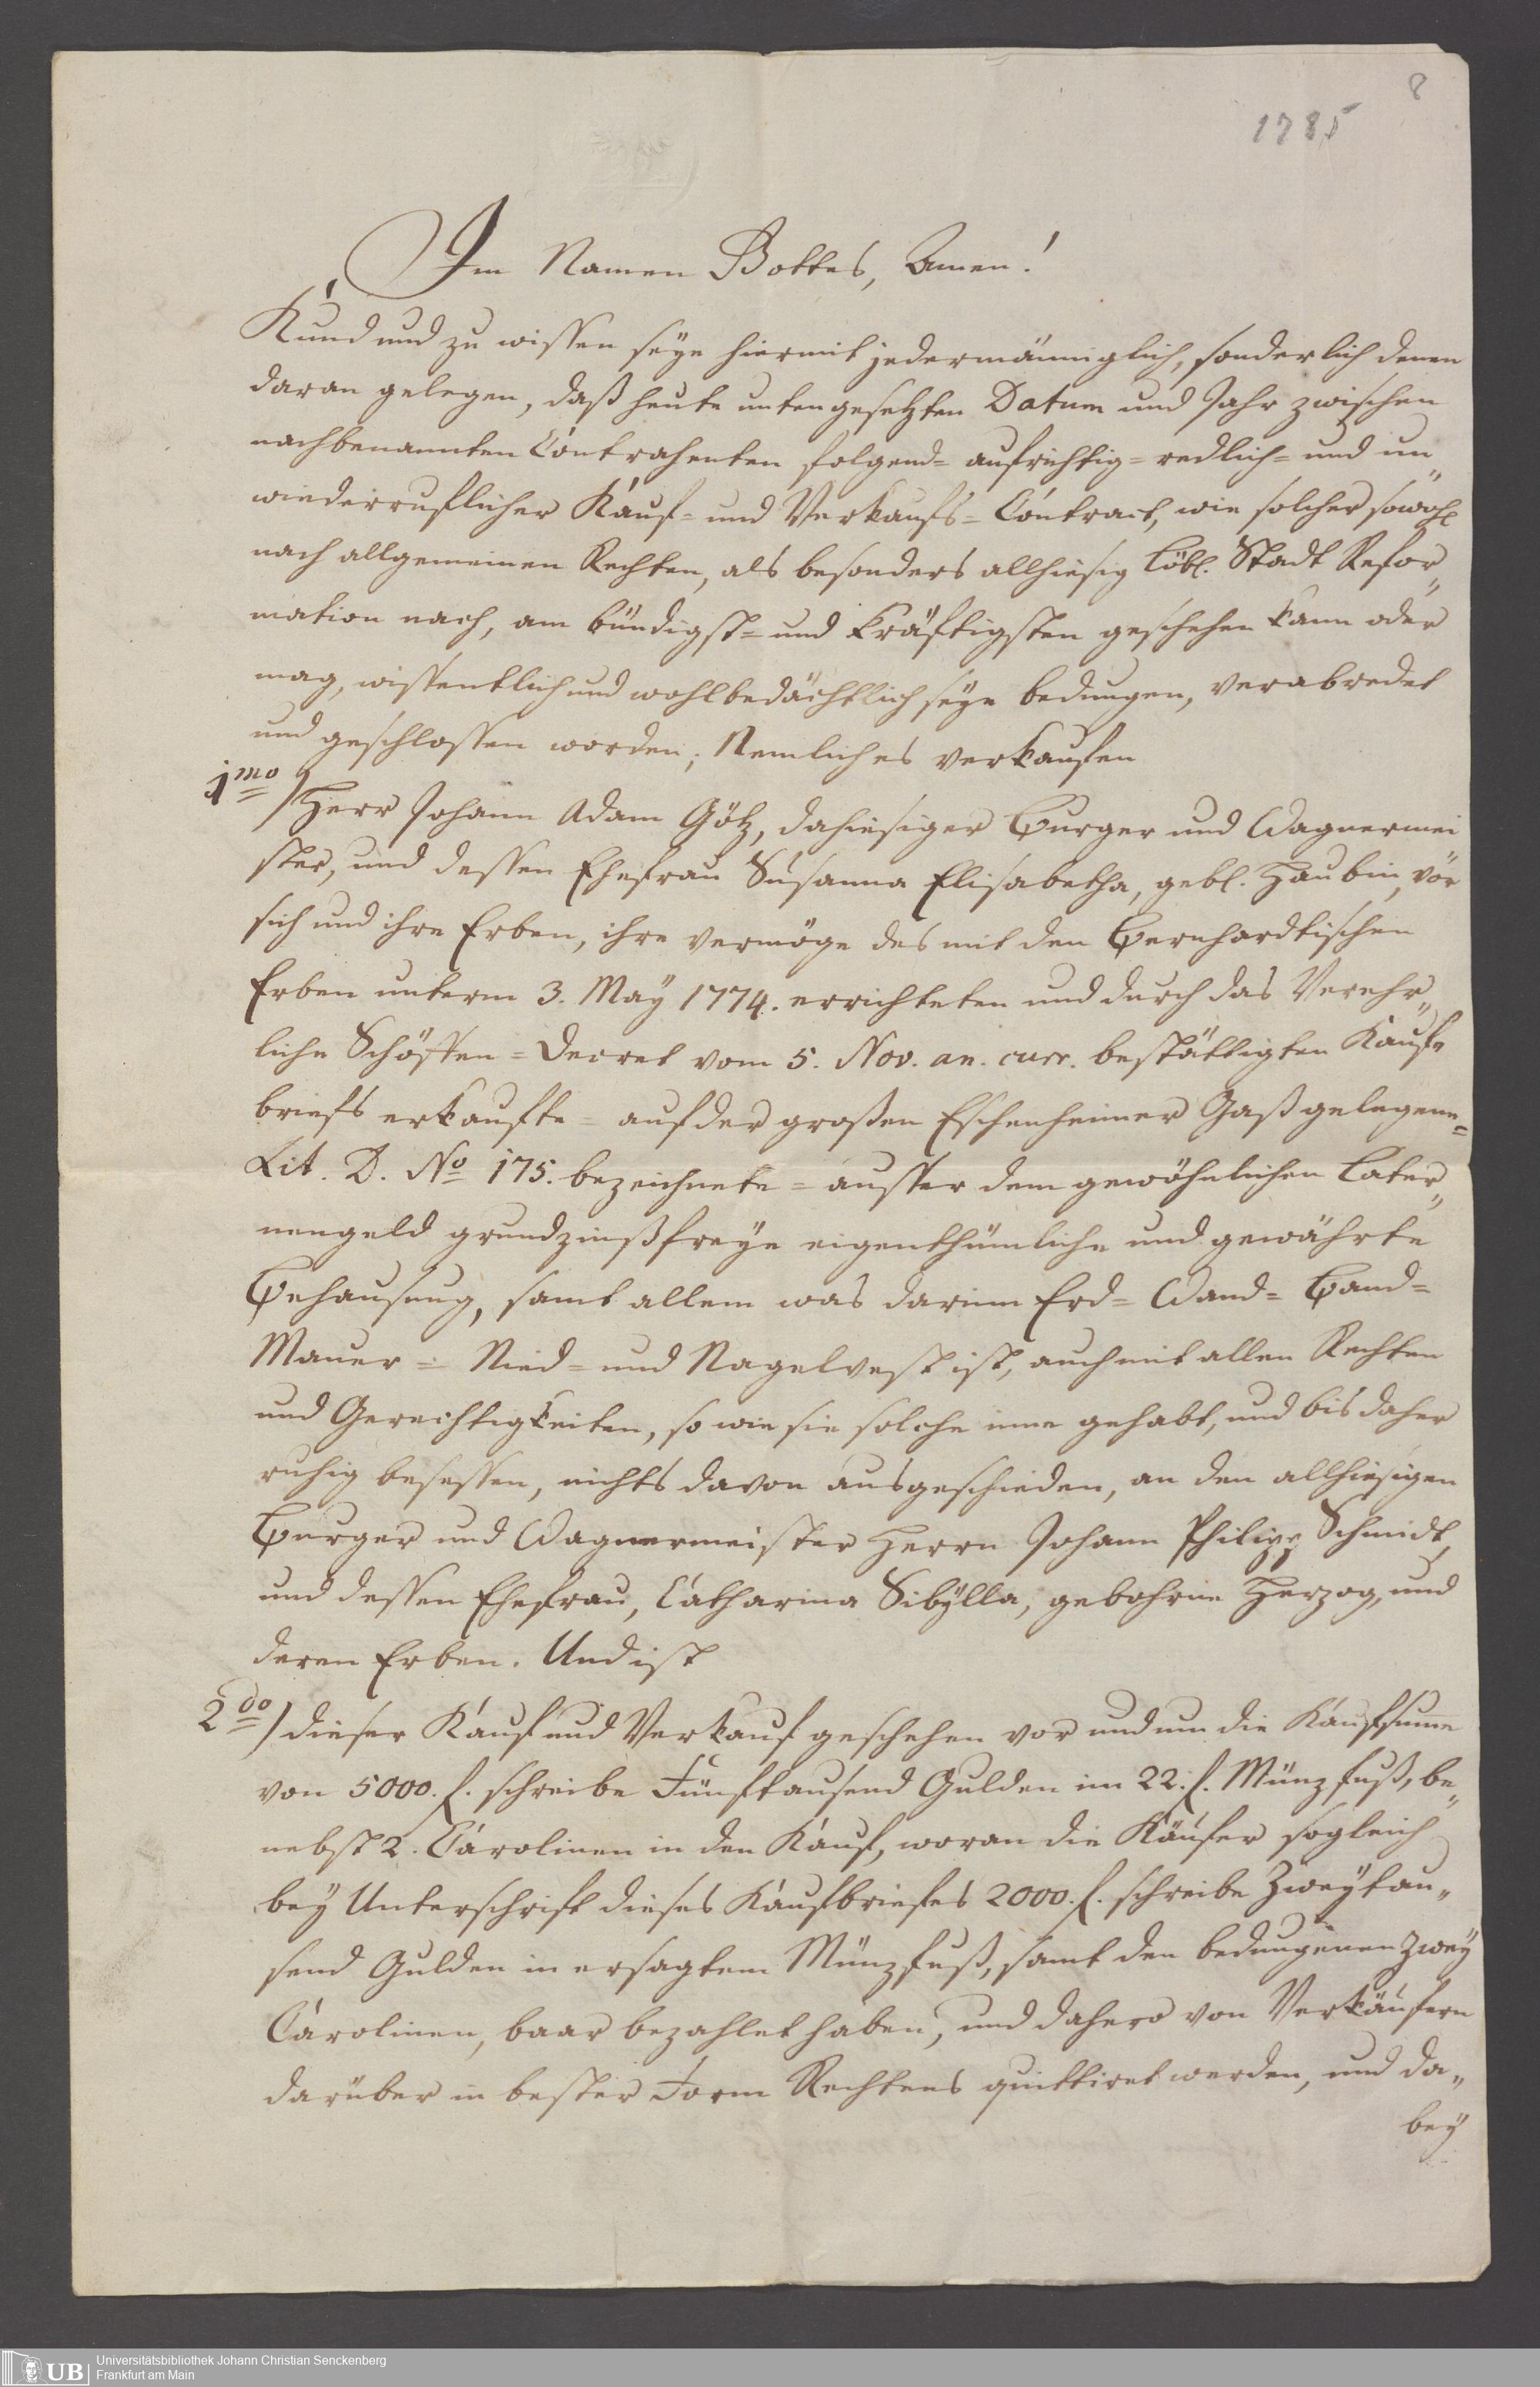 8
1785
Im Namen Gottes, Amen!
Kund und zu wissen seye hiermit jedermänniglich, sonderlich denen
daran gelegen, daß heute untengesetzten Datum und Jahr zwischen
nachbenannten Contrahenten folgend= aufrichtig= redlich= und un„
wiederruflicher Kauf= und Verkaufs= Contract, wie solcher sowohl
nach allgemeinen Rechten, als besonders allhiesig Löbl. Stadt Refor„
mation nach, am bündigst= und kräftigsten geschehen kann oder
mag, wissentlich und wohlbedächtlich seye bedungen, verabredet
und geschlossen worden; Nemlich es verkaufen
1mo) Herr Johann Adam Götz, dahiesiger Burger und Wagnermei
ster, und dessen Ehefrau Susanna Elisabetha, gebl. Haubin, vor
sich und ihre Erben, ihre vermöge des mit den Bernhardtischen
Erben unterm 3. May 1774. errichteten und durch das Verehr„
liche Schöffen= Decret vom 5. Nov. an. curr. bestättigten Kauf„
briefs erkaufte= auf der großen Eschenheimer Gaß gelegene=
Lit. D. No 175. bezeichnete= ausser dem gewöhnlichen Later„
nengeld grundzinßfreye eigenthümliche und gewährte
Behausung, samt allem was darinn Erd= Wand= Band=
Mauer= Nied= und Nagelvest ist, auch mit allen Rechten
und Gerechtigkeiten, so wie sie solche inne gehabt, und bis daher
ruhig besessen, nichts davon ausgeschieden, an den allhiesigen
Burger und Wagnermeister Herrn Johann Philipp Schmidt,
und dessen Ehefrau, Catharina Sibÿlla, gebohrne Herzog, und
deren Erben. Und ist
2do) dieser Kauf und Verkauf geschehen vor und um die Kaufsumme
von 5000. f. schreibe Fünftausend Gulden im 22. f. Münzfuß, be„
nebst 2. Carolinen in den Kauf, woran die Käufer sogleich
bey Unterschrift dieses Kaufbriefes 2000. f. schreibe Zweytau„
send Gulden in ersagtem Münzfuß, samt den bedungenen zwey
Carolinen, baar bezahlet haben, und dahero von Verkäufern
darüber in bester Form Rechtens quittiret werden, und da„
bey
UB
Universitätsbibliothek Johann Christian Senckenberg
Frankfurt am Main